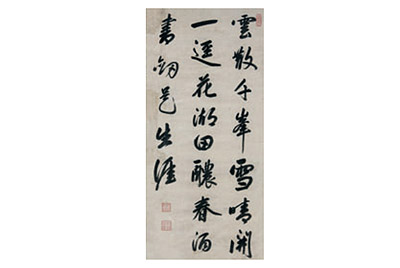 雲散千峯雪晴開
一逕花湖田醲春酒
書劍是生涯